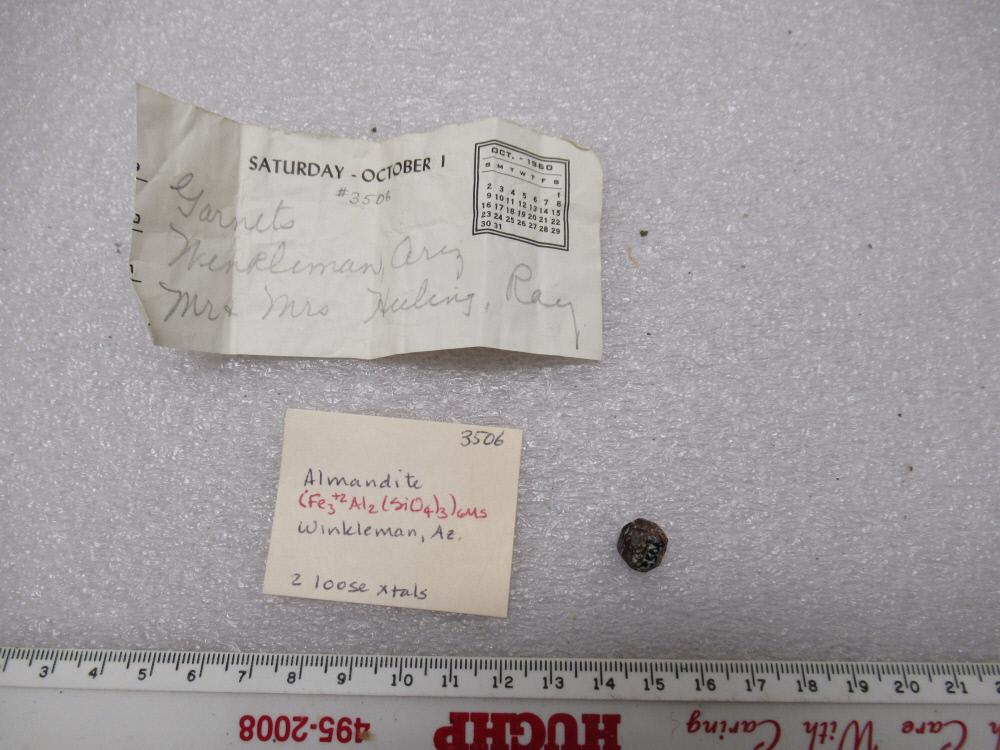 SATURDAY - OCTOBER 1
#3506
Garnets
Winkleman, Ariz
Mr & Mrs Huling, Ray
OCT. - 1960
S M T W T F S
1
2 3 4 5 6 7 8
9 10 11 12 13 14 15
16 17 18 19 20 21 22
23 24 25 26 27 28 29
30 31
3506
Almandite
(Fe₃⁺²Al₂(SiO₄)₃)GMS
Winkleman, Az.
2 loose xtals
3 4 5 6 7 8 9 10 11 12 13 14 15 16 17 18 19 20 21 2
495-2008
HUGHP
Care With Caring